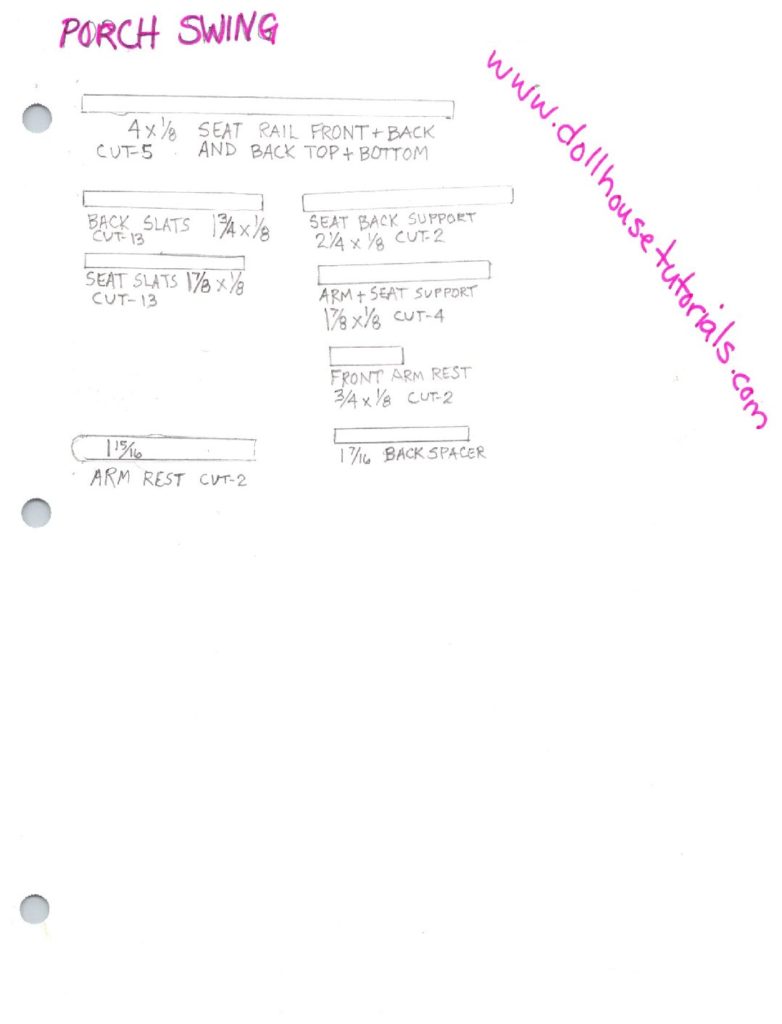 PORCH SWING
www.dollhousetutorials.com
4 x 1/8 SEAT RAIL FRONT + BACK
CUT-5 AND BACK TOP + BOTTOM
BACK SLATS 1 3/4 x 1/8
CUT-13
SEAT SLATS 1 7/8 x 1/8
CUT-13
SEAT BACK SUPPORT
2 1/4 x 1/8 CUT-2
ARM + SEAT SUPPORT
1 7/8 x 1/8 CUT-4
FRONT ARM REST
3/4 x 1/8 CUT-2
1 15/16
ARM REST CUT-2
1 7/16 BACK SPACER